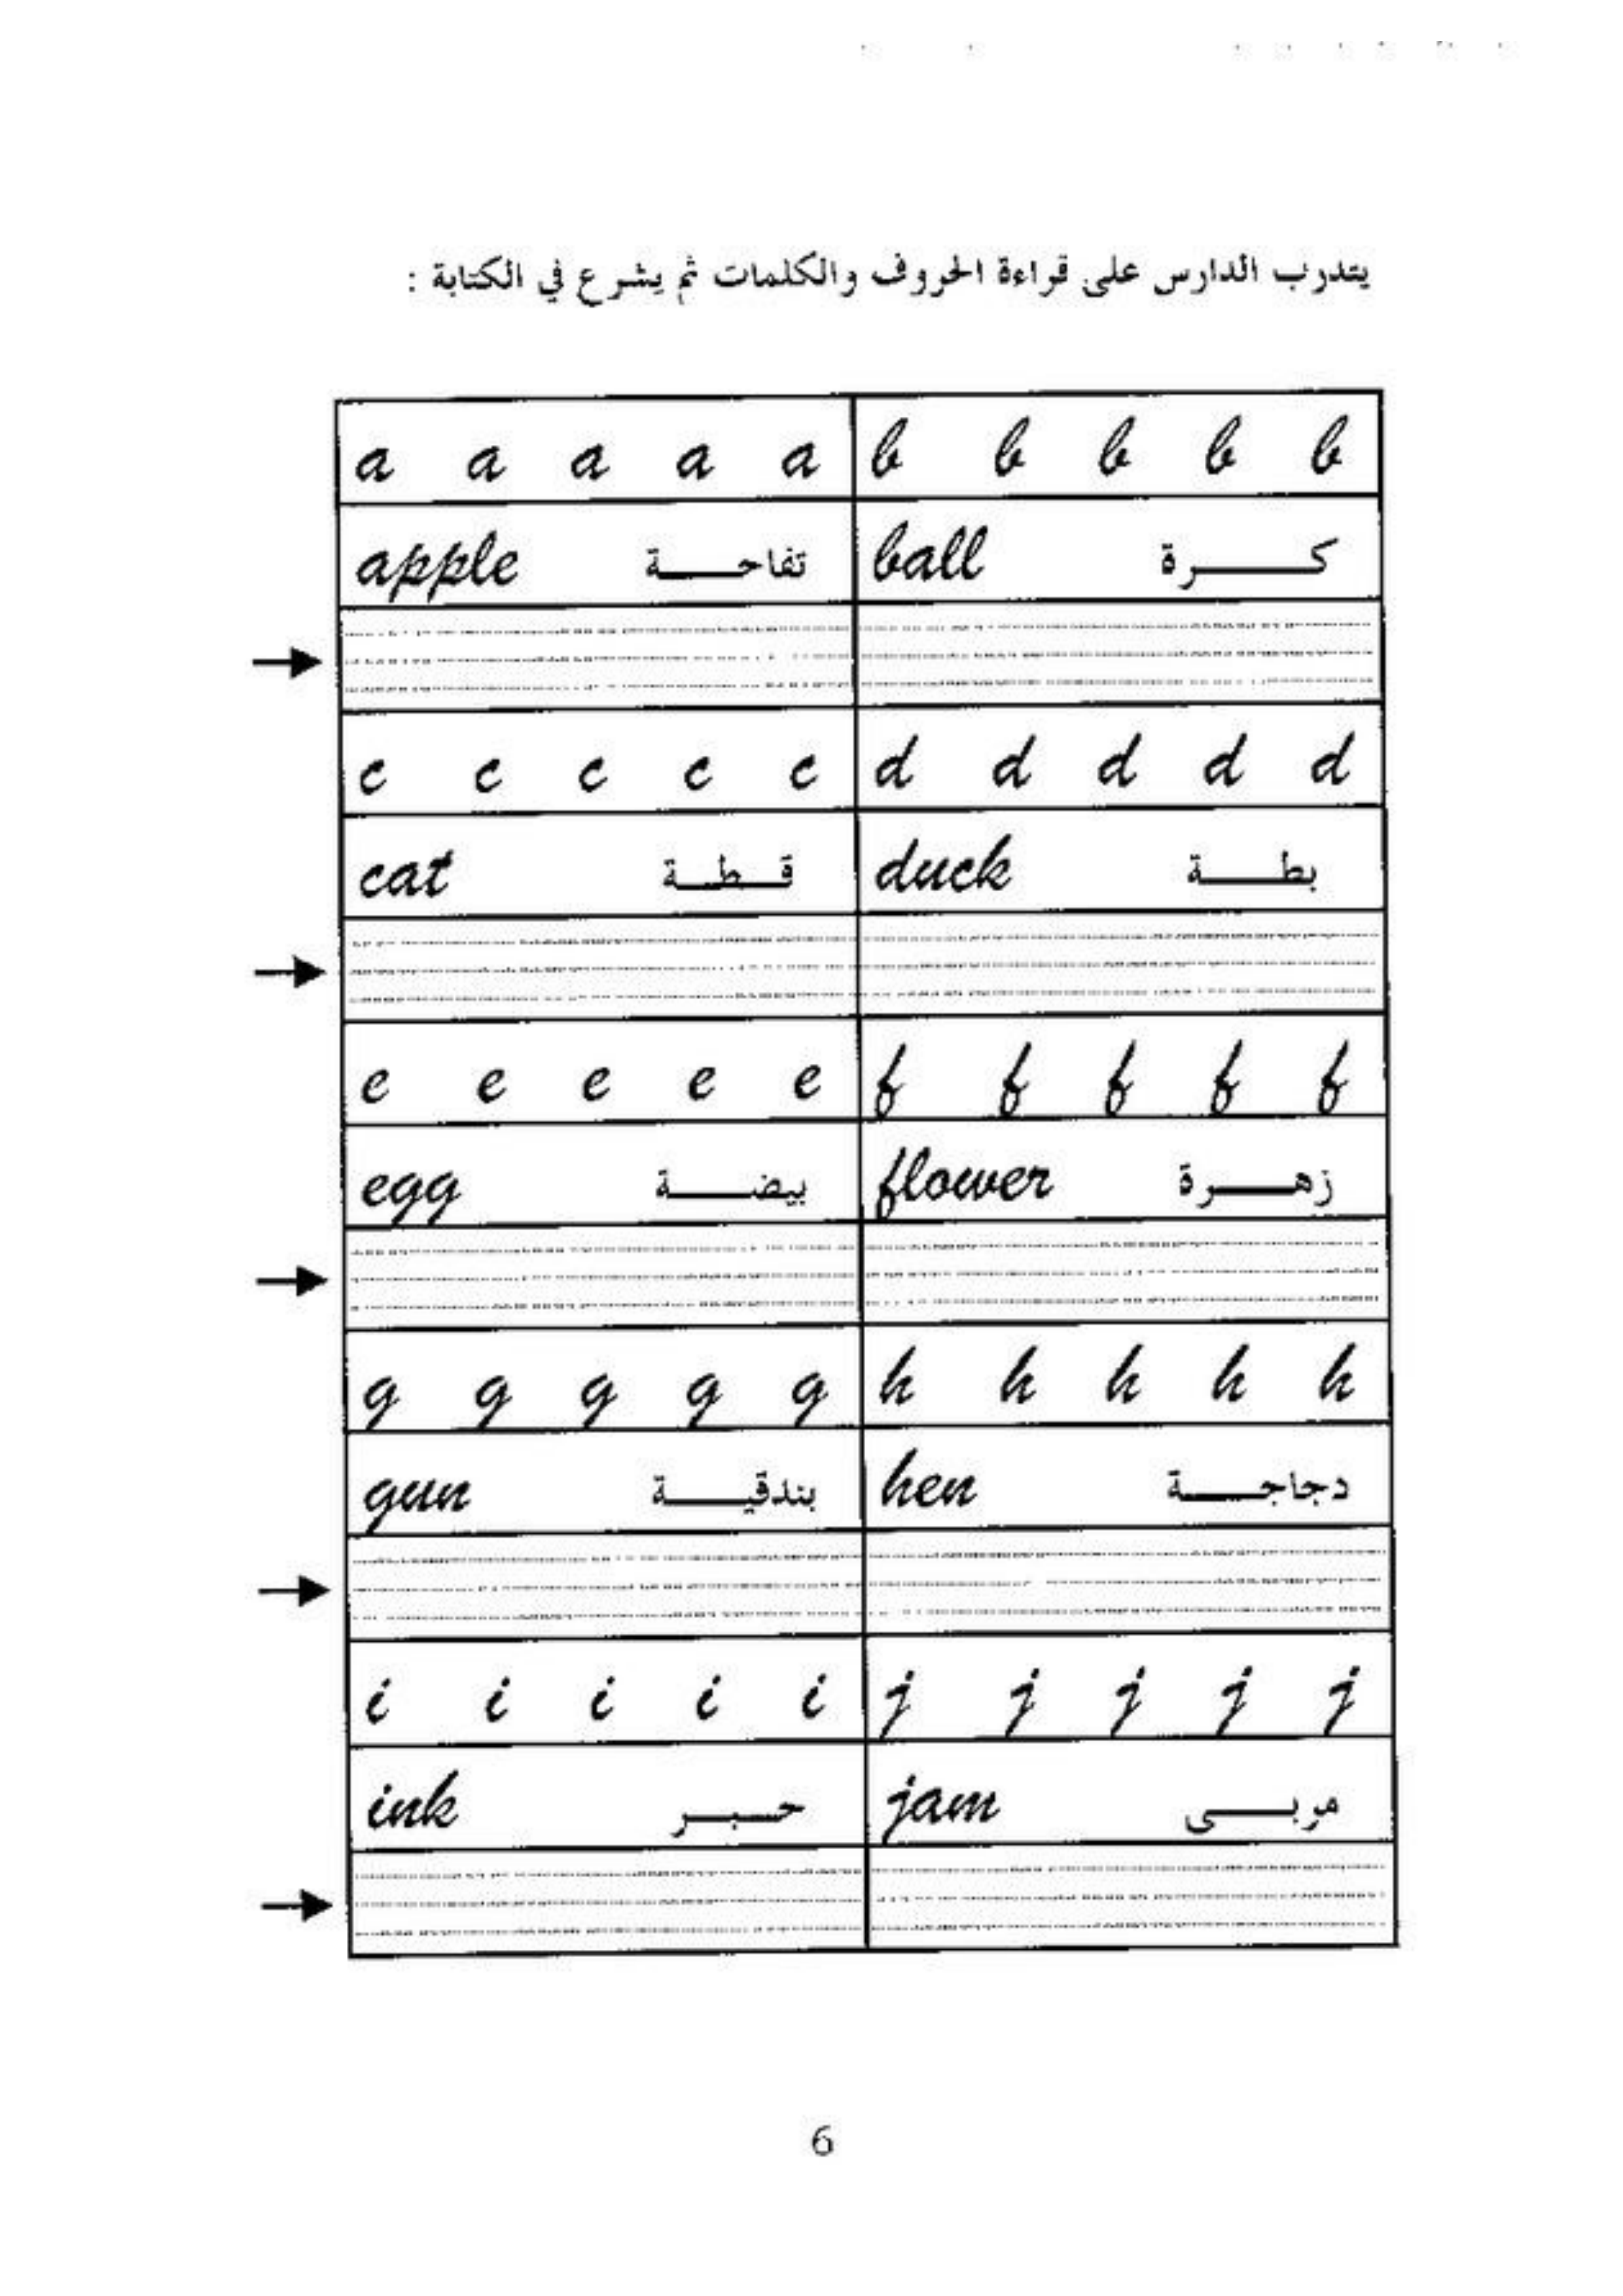 يتدرب الدارس على قراءة الحروف والكلمات ثم يشرع في الكتابة :
a a a a a b b b b b
apple تفاحة ball كرة
c c c c c d d d d d
cat قطة duck بطة
e e e e e f f f f f
egg بيضة flower زهرة
g g g g g h h h h h
gun بندقية hen دجاجة
i i i i i j j j j j
ink حبر jam مربى
6